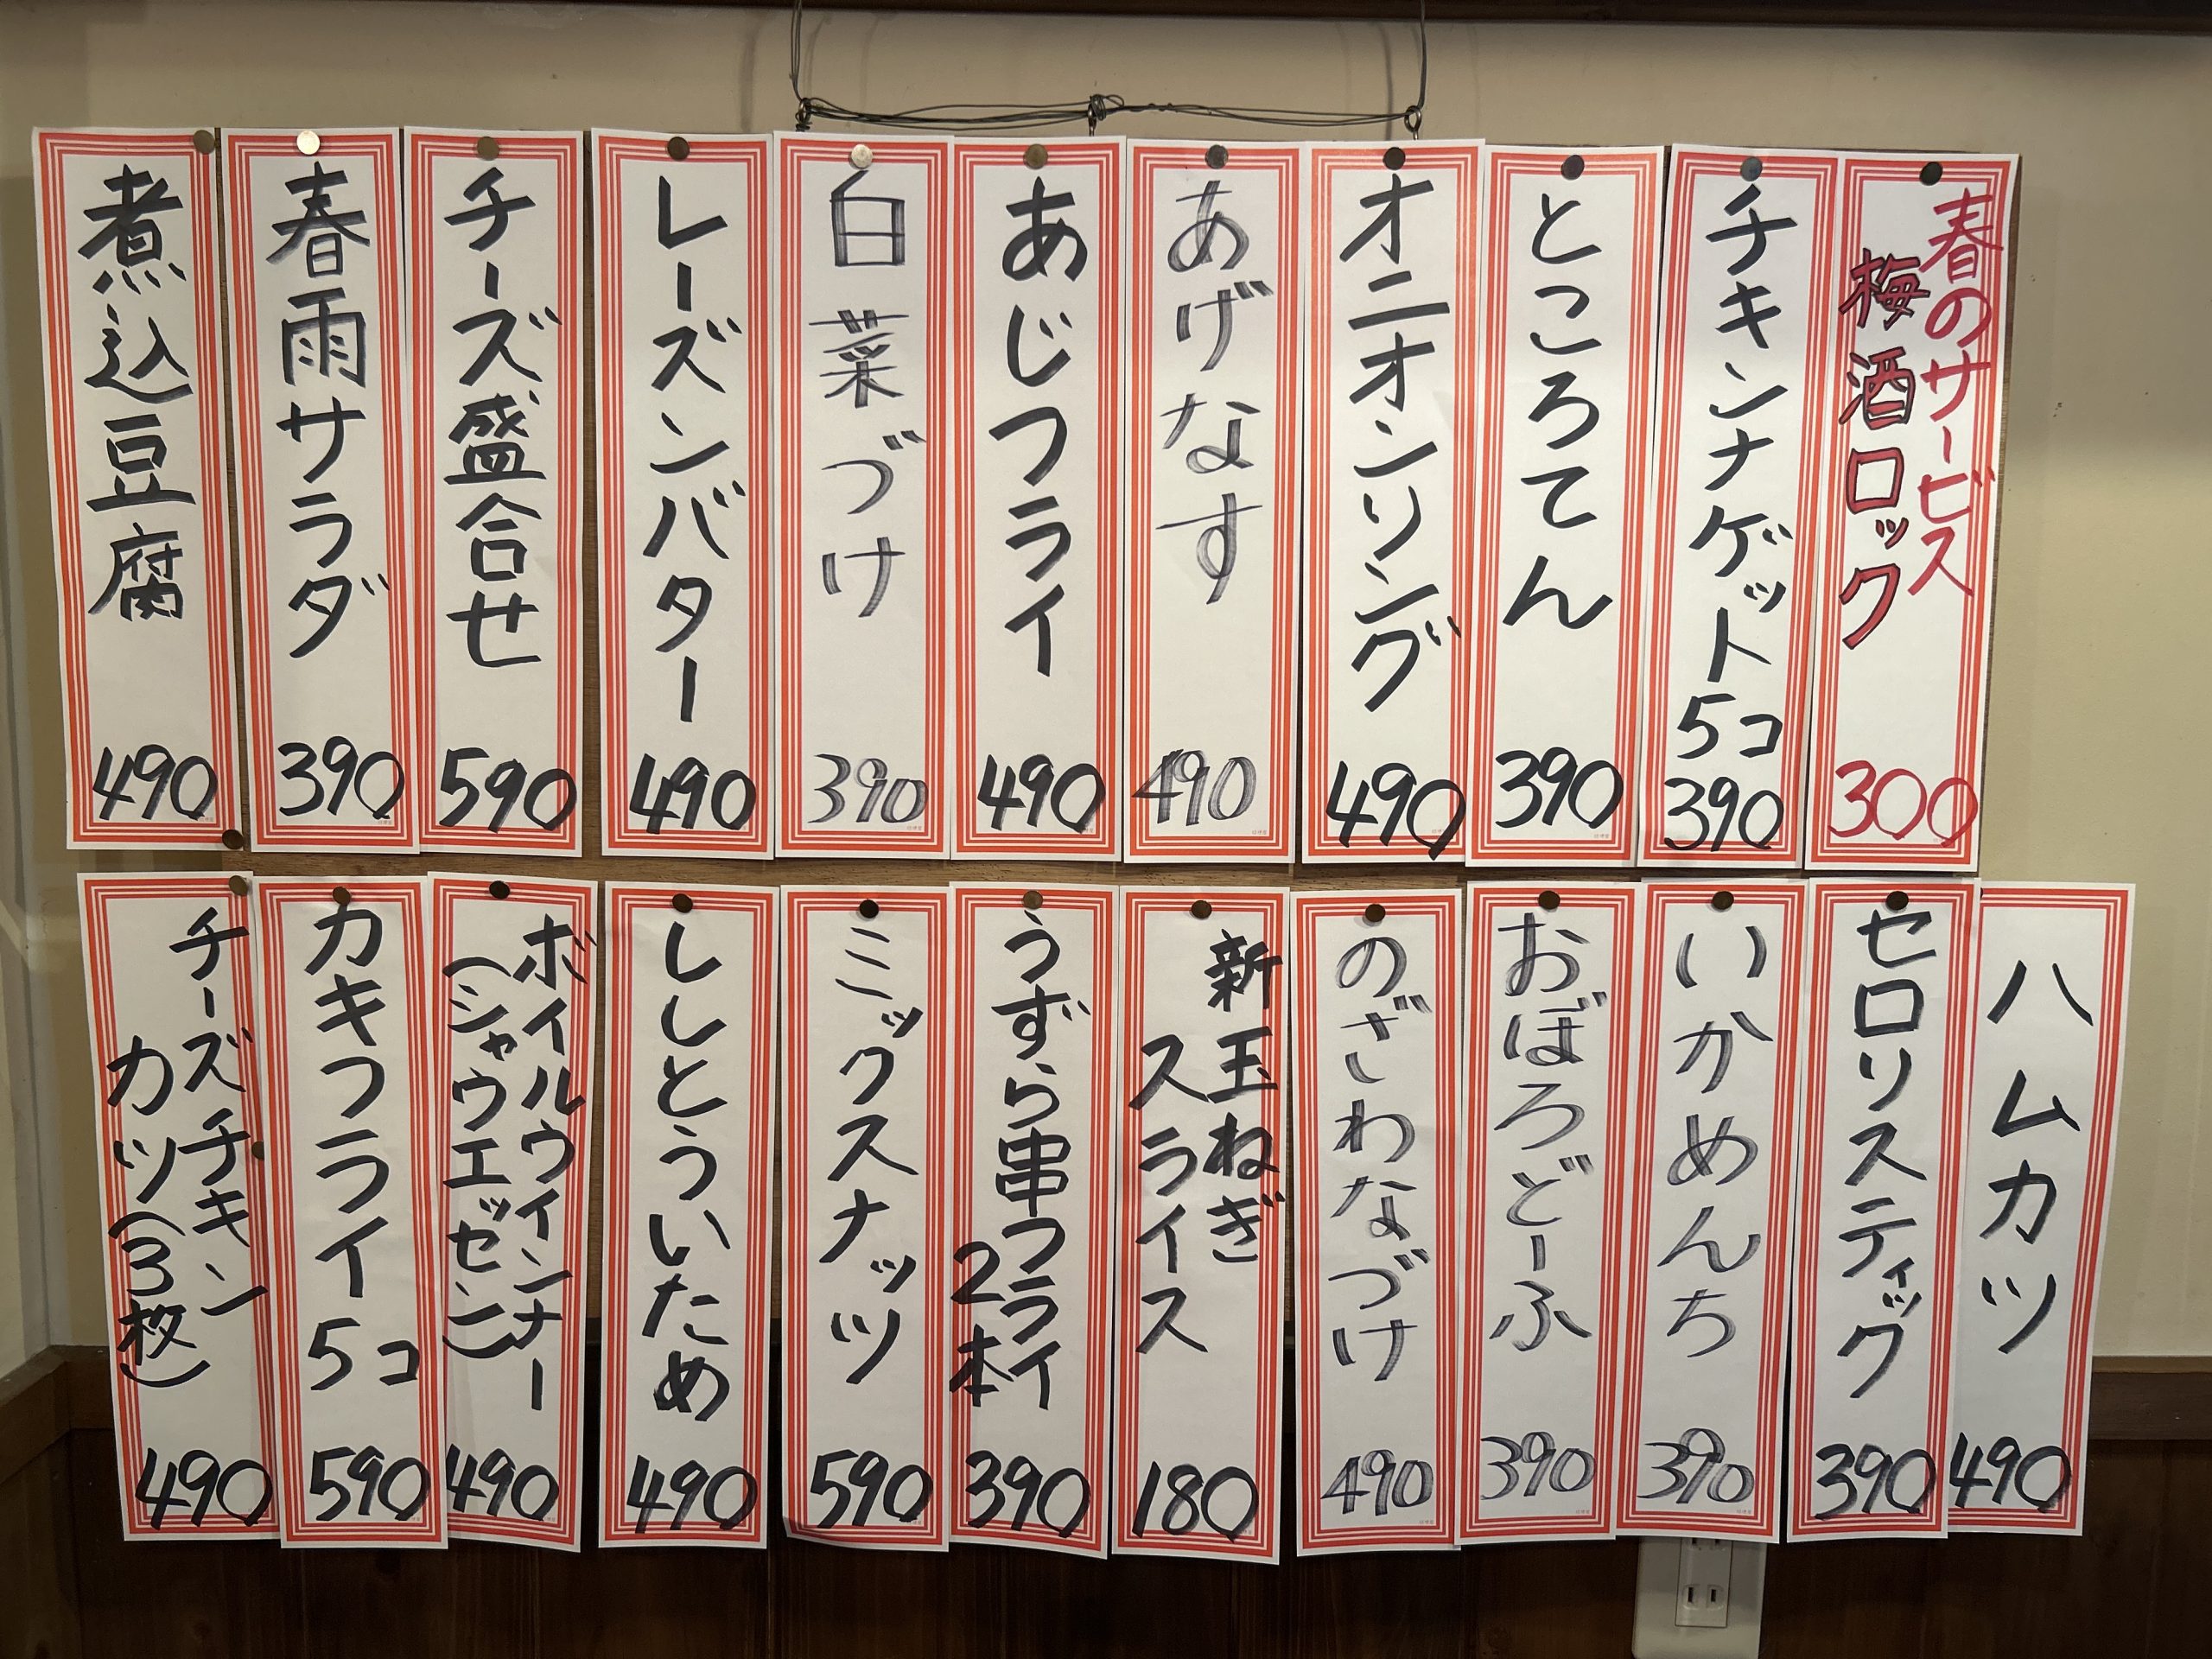 春のサービス
梅酒ロック
300
チキンナゲット5コ
390
ところてん
390
オニオンリング
490
あげなす
490
あじフライ
490
白菜づけ
390
レーズンバター
490
チーズ盛合せ
590
春雨サラダ
390
煮込豆腐
490
ハムカツ
490
セロリスティック
390
いかめんち
390
おぼろどーふ
390
のざわなづけ
490
新玉ねぎ
スライス
180
うずら串フライ
2本
390
ミックスナッツ
590
ししとういため
490
ボイルウインナー
(シャウエッゼン)
490
カキフライ5コ
590
チーズチキン
カツ(3枚)
490